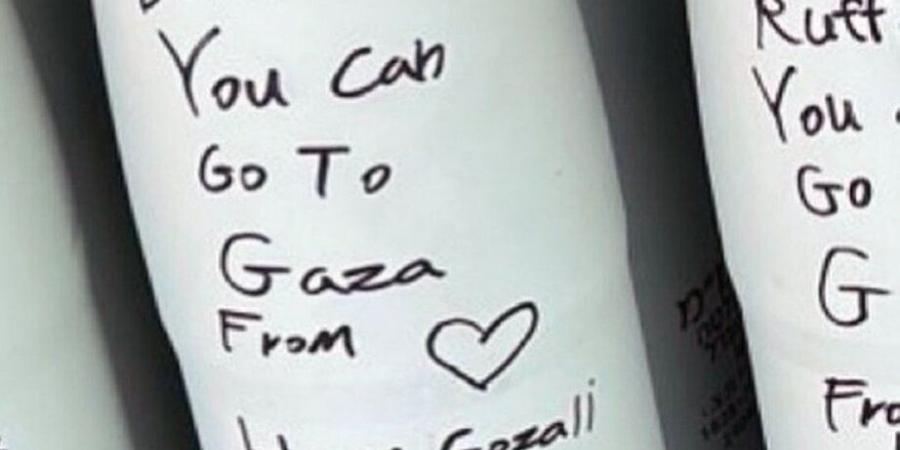 You Can
Go To
Gaza
From ♡
Gozali
Rutt
You
Go
G
Fro